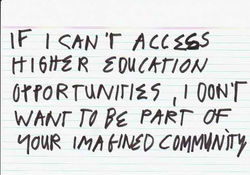 IF I CAN'T ACCESS
HIGHER EDUCATION
OPPORTUNITIES, I DON'T
WANT TO BE PART OF
YOUR IMAGINED COMMUNITY